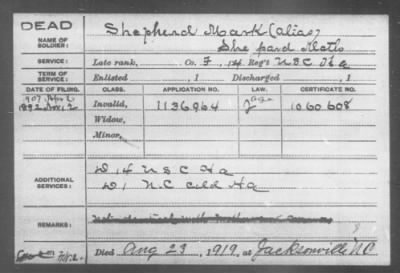 DEAD
NAME OF SOLDIER: Shepherd Mark (alias)
Shepard
SERVICE: Late rank, Co. F, 14 Reg't U S C H a
TERM OF SERVICE: Enlisted , 1 Discharged , 1
DATE OF FILING. CLASS. APPLICATION NO. LAW. CERTIFICATE NO.
1892 Invalid, 1136964 1060608
Widow,
Minor,
ADDITIONAL SERVICES: D 14 U S C H a
D 1 N.C Cld H a
REMARKS:
Died Aug 23, 1919, at Jacksonville NC